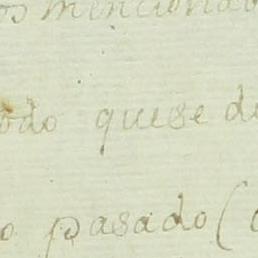 os mencionad
odo quese d
o pasado (